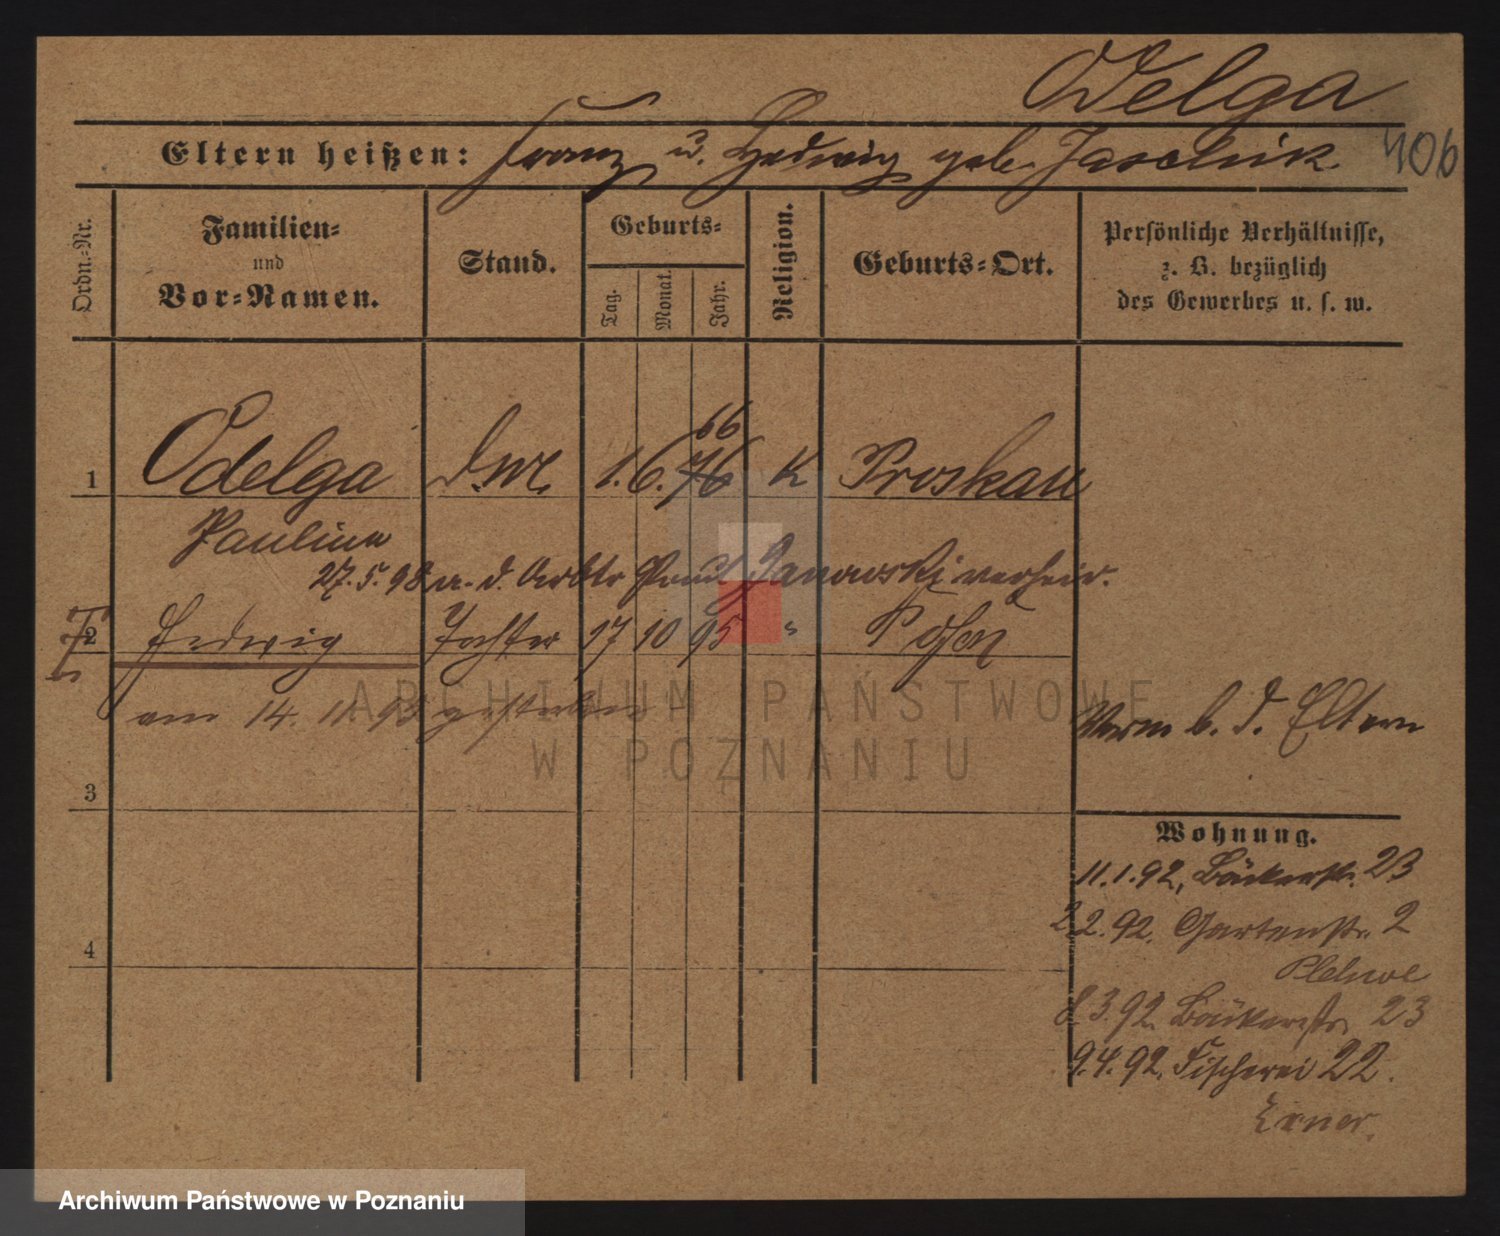 Odelga
Eltern heißen: Franz u. Hedwig geb. Jaschik
406
Ordn.-Nr.
Familien-
und
Vor-Namen.
Stand.
Geburts-
Tag.
Monat.
Jahr.
Religion.
Geburts-Ort.
Persönliche Verhältnisse,
z. B. bezüglich
des Gewerbes u. s. w.
66
1 Odelga 1. 6. 76 K Proskau
Pauline
27.5.98 a. d. Arbtr Janowski verheir.
2 Hedwig Tochter 17 10 95 " Posen
am 14. gestorben
b. d. Eltern
3
Wohnung.
11.1.92, Bäckerstr. 23
2.2.92. Gartenstr. 2
4
Plehwe
8.3.92. Bäckerstr. 23
9.4.92. Fischerei 22.
Exner.
ARCHIWUM PAŃSTWOWE
W POZNANIU
Archiwum Państwowe w Poznaniu